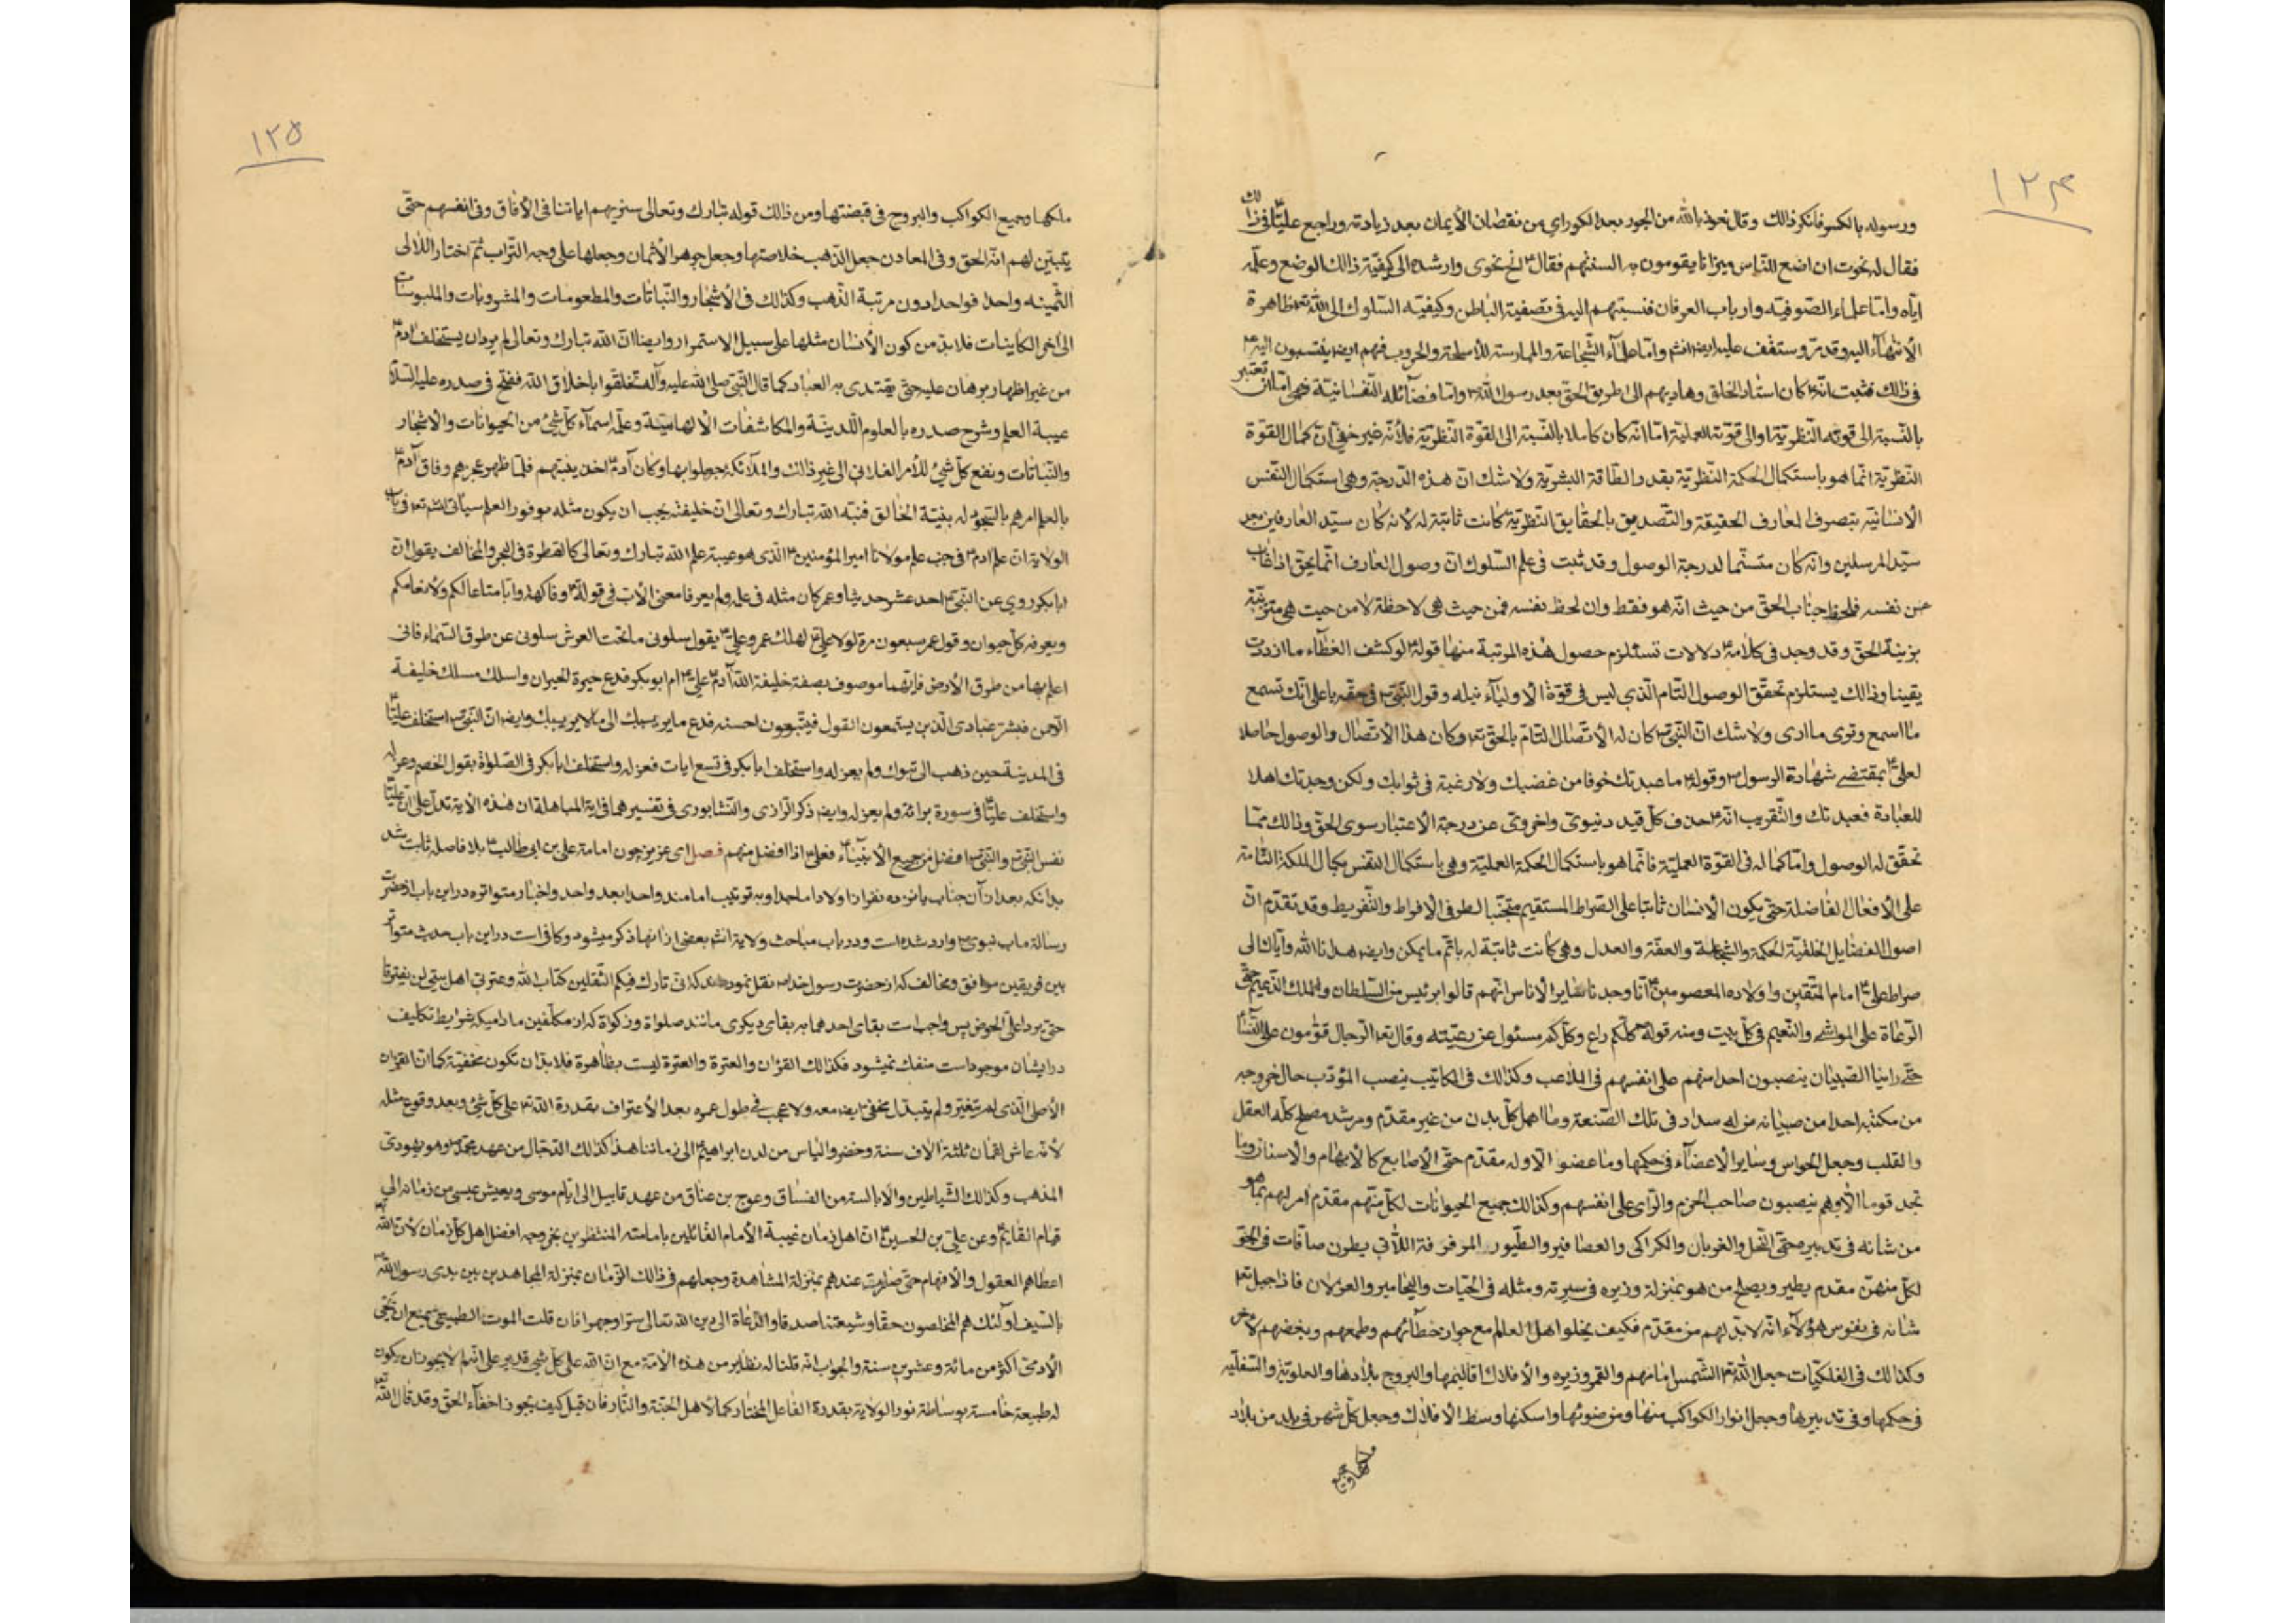 ١٢٤
ورسوله بالكسر فانكر ذالك وقال نعوذ بالله من الحور بعد الكور اي من نقصان الأيمان بعد زيادته وراجع عليّا ع في ذالك
فقال له نحوت ان اضع للنّاس ميزانا يقومون به السنتهم فقال ع انح نحوي وارشده الى كيفيّة ذالك الوضع وعلّمه
ايّاه وامّا علماء الصّوفيّه وارباب العرفان فنسبتهم اليه في تصفية الباطن وكيفيّه السّلوك الى الله تعـ ظاهرة
الأنتهآء اليه وقد مرّ وستقف عليه ايضا انشـ وامّا علمآء الشّجاعة والممارسة للأسلحة والحروب فهم ايضا ينتسبون اليه ع
في ذالك فثبت انّه ع كان استاد الخلق وهاديهم الى طريق الحقّ بعد رسول الله ص وامّا فضآئله النّفسانيّة فهي امّا ان تعتبر
بالنّسبة الى قوّته النّظريّة او الى قوّته العمليّة امّا انّه كان كاملا بالنّسبة الى القوّة النّظريّة فلأنّه غير خفيّ انّ كمال القوّة
النّظريّة انّما هو باستكمال الحكمة النّظريّة بقدر الطّاقة البشريّة ولا شك انّ هذه الدّرجة وهي استكمال النّفس
الأنسانيّة بتصرف المعارف الحقيقة والتّصديق بالحقايق النّظريّة كانت ثابتة له لأنه كان سيّد العارفين بعد
سيّد المرسلين وانّه كان متسنّما لدرجة الوصول وقد ثبت في علم السّلوك انّ وصول العارف انّما يحقّ اذا غاب
عن نفسه فلحظ جناب الحقّ من حيث انّه هو فقط وان لحظ نفسه فمن حيث هي لاحظة لا من حيث هي متزيّنة
بزينة الحقّ وقد وجد في كلامه ع دلالات تستلزم حصول هذه المرتبة منها قوله ع لو كشف الغطآء ما ازددت
يقينا وذالك يستلزم تحقّق الوصول التّام الّذي ليس في قوّة الأوليآء نيله وقول النّبيّ ص في حقّه يا علي انّك تسمع
ما اسمع وترى ما ارى ولا شك انّ النّبيّ ص كان له الأتّصال التّامّ بالحقّ تعـ وكان هذا الأتّصال والوصول حاصلا
لعليّ ع بمقتضى شهادة الرسول ص وقوله ع ما عبدتك خوفا من غضبك ولا رغبة في ثوابك ولكن وجدتك اهلا
للعبادة فعبدتك والتّقريب انّه ع حذف كلّ قيد دنيويّ واخرويّ عن درجة الأعتبار سوى الحقّ وذالك ممّا
تحقّق له الوصول وامّا كماله في القوّة العمليّة فانّما هو باستكمال الحكمة العمليّة وهي باستكمال النّفس بكمال الملكة التّامّة
على الأفعال الفاضلة حتّى يكون الأنسان ثابتا على الصّراط المستقيم متجنّبا لطرفي الأفراط والتّفريط وقد تقدّم انّ
اصول الفضايل الخلقيّة الحكمة والشّجاعة والعفّة والعدل وهي كانت ثابتة له باتمّ ما يمكن وايضا هدانا الله وايّاك الى
صراط علي ع امام المتّقين واولاده المعصومين ع انّا وجدنا ساير الأناس انّهم قالوا برئيس من السّلطان والملك الزّعيم حتّى
الرّعاة على المواشي والنّعيم في كلّ بيت ومنه قوله ص كلّكم راع وكلّكم مسئول عن رعيّته وقال تعـ الرّجال قوّامون على النّسآء
حتّى راينا الصّبيان ينصبون احدا منهم على انفسهم في الملاعب وكذالك في المكاتيب ينصب المؤدّب حال خروجه
من مكتبه احدا من صبيانه من له سداد في تلك الصّنعة وما اهل كلّ بدن من غير مقدّم ومرشد مصلح كالعقل
والقلب وجعل الحواس وساير الأعضآء في حكمها وما عضو الّا وله مقدّم حتّى الأصابع كالأبهام والأسنان وما
تجد قوما الّا وهم ينصبون صاحب الحزم والرّاي على انفسهم وكذالك جميع الحيوانات لكلّ منّهم مقدّم امر لهم بما هو
من شانه في تدبيره حتّى النّحل والغربان والكراكي والعصافير والطّيور المرفرفة اللّاتي يطرن صافّات في الجوّ
لكلّ منهنّ مقدم يطير ويصلح من هو بمنزلة وزيره في سيرته ومثله في الحيّات واليحامير والغزلان فاذا جبل تعـ
شانه في نفوس هؤلآء انّه لا بدّ لهم من مقدّم فكيف يخلوا اهل العالم مع جواز خطآئهم وطمعهم وبغضهم لآخر
وكذالك في الفلكيّات جعل الله تعـ الشّمس امامهم والقمر وزيره والأفلاك اقاليمها والبروج بلادها والعلويّة والسّفليّه
في حكمها وفي تدبيرها وجعل انوار الكواكب منها ومن ضوئها واسكنها وسط الأفلاك وجعل كلّ شهر في بلد من بلاد
ملكها وجميع
١٢٥
ملكها وجميع الكواكب والبروج في قبضتها ومن ذالك قوله تبارك وتعالى سنريهم اياتنا في الأفاق وفي انفسهم حتّى
يتبيّن لهم انّه الحق وفي المعادن جعل الذّهب خلاصتها وجعل جوهر الأثمان وجعلها على وجه التّراب ثمّ اختار اللألى
الثّمينه واحدا فواحدا دون مرتبة الذّهب وكذالك في الأشجار والنّباتات والمطعومات والمشروبات والملبوسات
الى آخر الكاينات فلا بدّ من كون الأنسان مثلها على سبيل الاستمرار وايضا انّ الله تبارك وتعالى لم يرد ان يستخلف ادم ع
من غير اظهار برهان عليه حتّى يقتدى به العباد كما قال النّبيّ صلى الله عليه وآله تخلّقوا باخلاق الله ففتح في صدره عليه السّلام
عيبة العلم وشرح صدره بالعلوم اللّدينّة والمكاشفات الألهاميّة وعلّمه اسمآء كلّ شئ من الحيوانات والاشجار
والنّباتات ونفع كلّ شئ للأمر الفلاني الى غير ذالك والملآئكة جهلوا بها وكان آدم ع اخذ ينبئهم فلمّا ظهر عجزهم وفاق آدم ع
بالعلم امرهم بالسّجود له بنيّة الخالق فنبّه الله تبارك وتعالى ان خليفته يجب ان يكون مثله بوفور العلم سياتى انشـ تعـ في باب
الولاية انّ علم ادم ع في جنب علم مولانا امير المؤمنين ع الّذى هو عيبة علم الله تبارك وتعالى كالقطرة في البحر والمخالف يقول انّ
ابا بكر روى عن النّبيّ ص احد عشر حديثا وعمر كان مثله في علمه ولم يعرفا معنى الأبّ في قوله تعـ وفاكهة وابّا متاعا لكم ولأنعامكم
ويعرفه كلّ حيوان وقول عمر سبعون مرة لولا عليّ ع لهلك عمر وعليّ ع يقول سلونى ما تحت العرش سلونى عن طرق السّماء فانى
اعلم بها من طرق الأرض فايّهما موصوف بصفة خليفة الله آدم ع عليّ ع ام ابو بكر فدع حيرة الحيران واسلك مسلك خليفة
الرّحمن فبشر عبادى الّذين يستمعون القول فيتّبعون احسنه فدع ما يريبك الى ما لا يريبك وايضا انّ النّبيّ ص استخلف عليّا ع
في المدينة حين ذهب الى تبوك ولم يعزله واستخلف ابا بكر في تسع ايات فعزله واستخلف ابا بكر في الصّلواة بقول الخصم وعزله
واستخلف عليّا ع في سورة برائة ولم يعزله وايضا ذكر الرّازى والنّشابورى في تفسيرهما في اية المباهلة ان هذه الأية تدلّ على انّ عليّا ع
نفس النّبيّ ص والنّبيّ ص افضل من جميع الأنبيآء ع فعليّ ع اذا افضل منهم فصل اى عزيز چون امامة على بن ابى طالب ع بلا فاصله ثابت شد
بدانكه بعد از آن جناب يازده نفر از اولاد امامجد او بترتيب امامند واحدا بعد واحد واخبار متواتره در اين باب از حضرت
رسالة ماب نبوى ص وارد شده است ودر باب مباحث ولاية انشـ بعضى از انها ذكر ميشود وكافي است در اين باب حديث متواتر
بين فريقين موافق ومخالف كه از حضرت رسول خدا ص نقل نموده‌اند كه انّى تارك فيكم الثّقلين كتاب الله وعترتى اهل بيتى لن يفترقا
حتّى يردا علىّ الحوض پس واجب است بقاى احدهما به بقاى ديكرى مانند صلواة وزكواة كه از مكلّفين ماداميكه شرايط تكاليف
در ايشان موجود است منفك نميشود فكذالك القرٔان والعترة والعترة ليست بظاهرة فلا بدّ ان تكون مخفيّة كما انّ القرٔان
الأصلى الّذى لم يتغيّر ولم يتبدّل مخفى ايضا معه ولا عجب فى طول عمره بعد الأعتراف بقدرة الله تعـ على كلّ شئ وبعد وقوع مثله
لأنّه عاش لقمان ثلثة الآف سنة وخضر والياس من لدن ابراهيم ع الى زماننا هذا كذالك الدّجّال من عهد محمّد ص وهو يهودىّ
المذهب وكذالك الشّياطين والأبالسة من الفسّاق وعوج بن عناق من عهد قابيل الى ايّام موسى ويعيش عيسى من زمانه الى
قيام القايم ع وعن عليّ بن الحسين ع انّ اهل زمان غيبة الأمام القائلين بامامته المنتظرين بخروجه افضل اهل كلّ زمان لأنّ الله تعـ
اعطاهم العقول والأفهام حتّى صارت عندهم بمنزلة المشاهدة وجعلهم في ذالك الزّمان بمنزلة المجاهدين بين يدى رسول الله ص
بالسّيف اولئك هم المخلصون حقّا وشيعتنا صدقا والدّعاة الى دين الله تعالى سرّا وجهرا فان قلت الموت الطّبيعي يمنع ان يحيى
الأدميّ اكثر من مائة وعشرين سنة والجواب انّه قلنا له نظاير من هذه الأمّة مع انّ الله على كلّ شئ قدير على انّهم لا يجوز ان يكون
له طبيعة خامسة بوساطة نور الولاية بقدرة الفاعل المختار كما لأهل الجنّة والنّار فان قيل كيف يجوز اخفآء الحقّ وقد قال الله تعـ